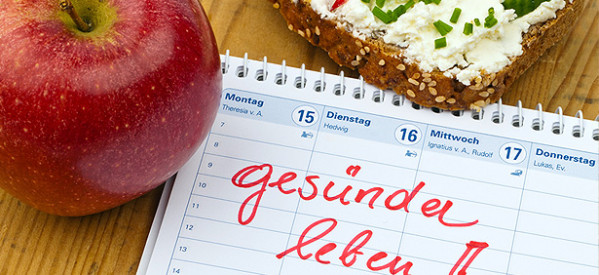 Montag 15 Dienstag 16 Mittwoch 17 Donnerstag
Theresia v. A. Hedwig Ignatius v. A., Rudolf Lukas, Ev.
7
8
9
10
11
12
13
14
gesünder
leben !!